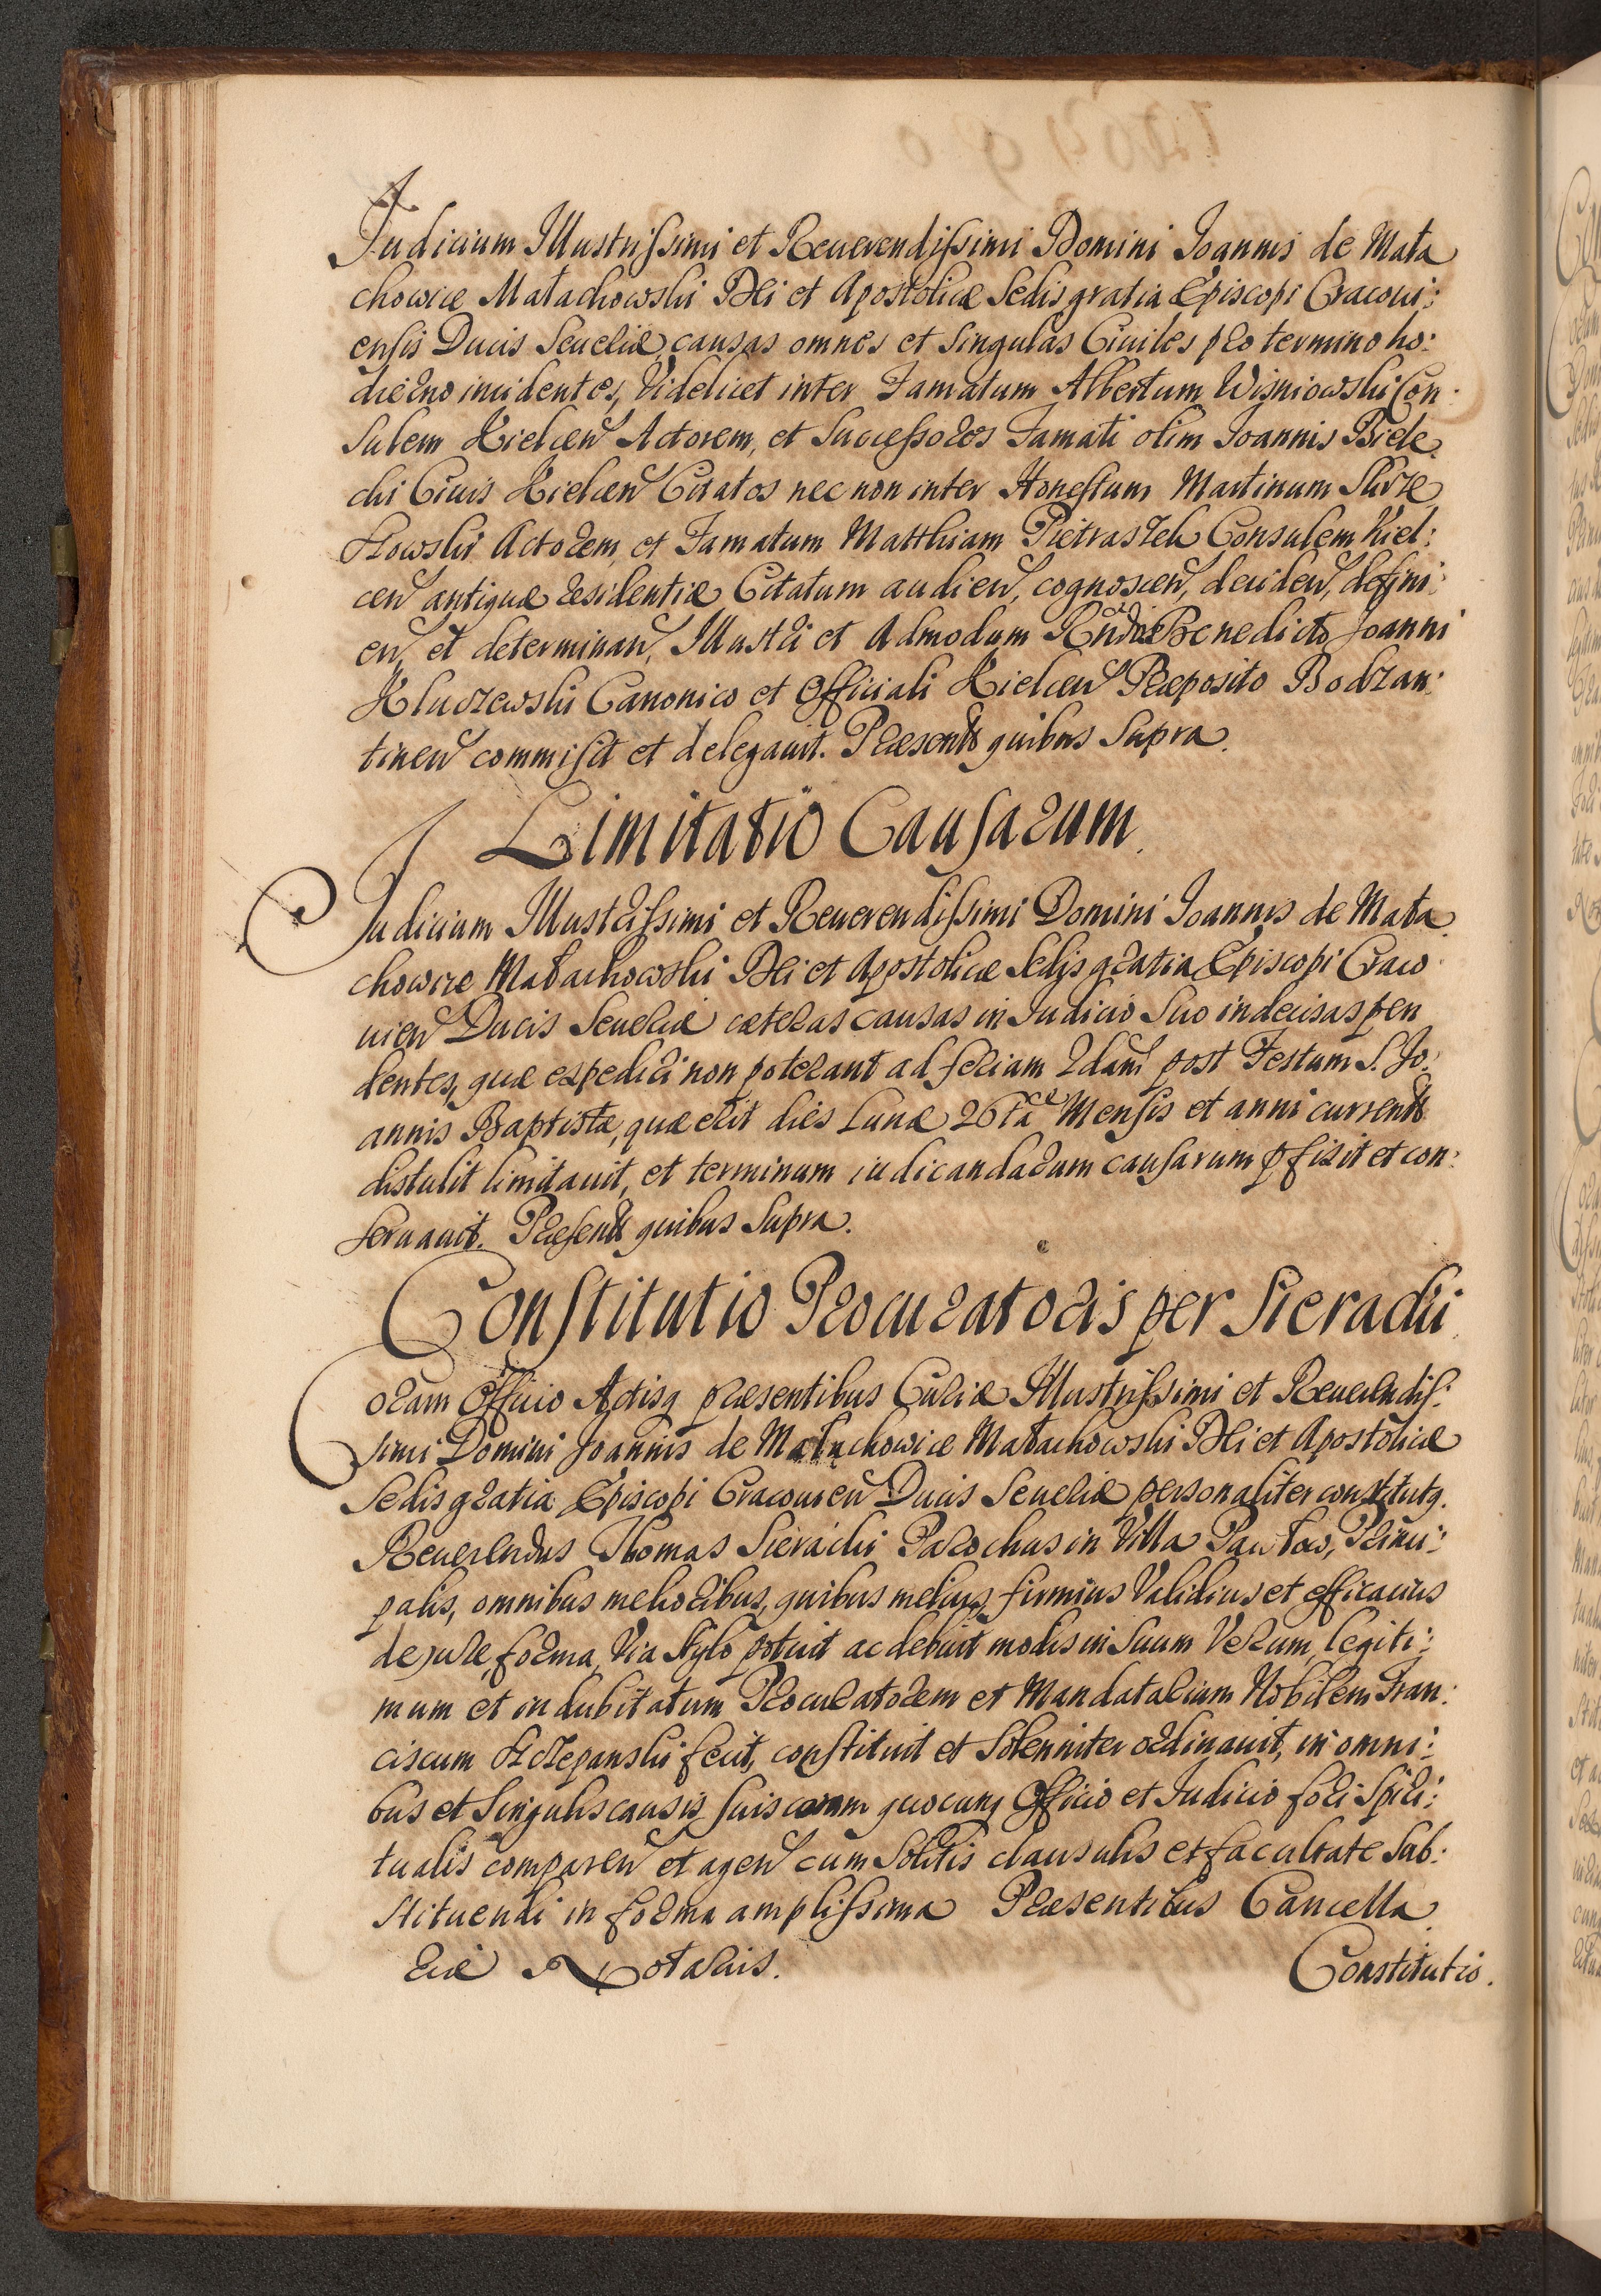 Judicium Illustrissimi et Reuerendissimi Domini Joannis de Mała
chowice Małachowski Dei et Apostolicæ Sedis gratia Episcopi Cracoui:
ensis Ducis Seueriæ, causas omnes et singulas Ciuiles pro termino ho:
dierno incidentes, Videlicet inter Famatum Albertum Wisniowski Con:
sulem Kielcen Actorem, et Successores Famati olim Joannis Biele
cki Ciuis Kielcen Citatos nec non inter Honestum Martinum
Actorem, et Famatum Matthiam Pietraszek Consulem Kiel:
cen antiquæ residentiæ Citatum audien, cognoscen, deciden, defini:
en, et determinan, Illustri et Admodum Rndo Benedicto Joanni
Kluczewski Canonico et Officiali Kielcen Præposito Bodzan:
tinen commisit et delegauit. Præsentt quibus Supra.
Limitatio Causarum.
Judicium Illustrissimi et Reuerendissimi Domini Joannis de Mała
chowice Małachowski Dei et Apostolicæ Sedis gratia Episcopi Craco
uien Ducis Seueriæ cæteras causas in Judicio Suo indecisas pen
dentes, quæ expediri non poterant ad feriam 2dam post Festum S. Jo:
annis Baptistæ, quæ erit dies Lunæ 26ta Mensis et anni currentt
distulit limitauit, et terminum iudicandarum causarum pfixit et con:
seruauit. Præsentt quibus Supra.
Constitutio Procuratoris per Sieradki
Coram Officio Actisq præsentibus Curiæ Illustrissimi et Reuerendis:
simi Domini Joannis de Małachowice Małachowski Dei et Apostolicæ
Sedis gratia Episcopi Cracouien Ducis Seueriæ personaliter constitutq.
Reuerendus Thomas Sieracki Parochus in Villa Pawłow, Princi:
palis, omnibus melioribus, quibus melius, firmius Validius et efficacius
de jure, forma, Via stylo potuit ac debuit modis in Suum Verum, legiti:
mum et indubitatum Procuratorem et Mandatarium Nobilem Fran:
ciscum Szczepanski fecit, constituit et Solenniter ordinauit, in omni:
bus et Singulis causis suis coram quocunq Officio et Judicio fori Spiri:
tualis comparen et agen cum Solitis clausulis et facultate Sub:
stituendi in forma amplissima Præsentibus Cancella
riæ Notariis.
Constitutio.